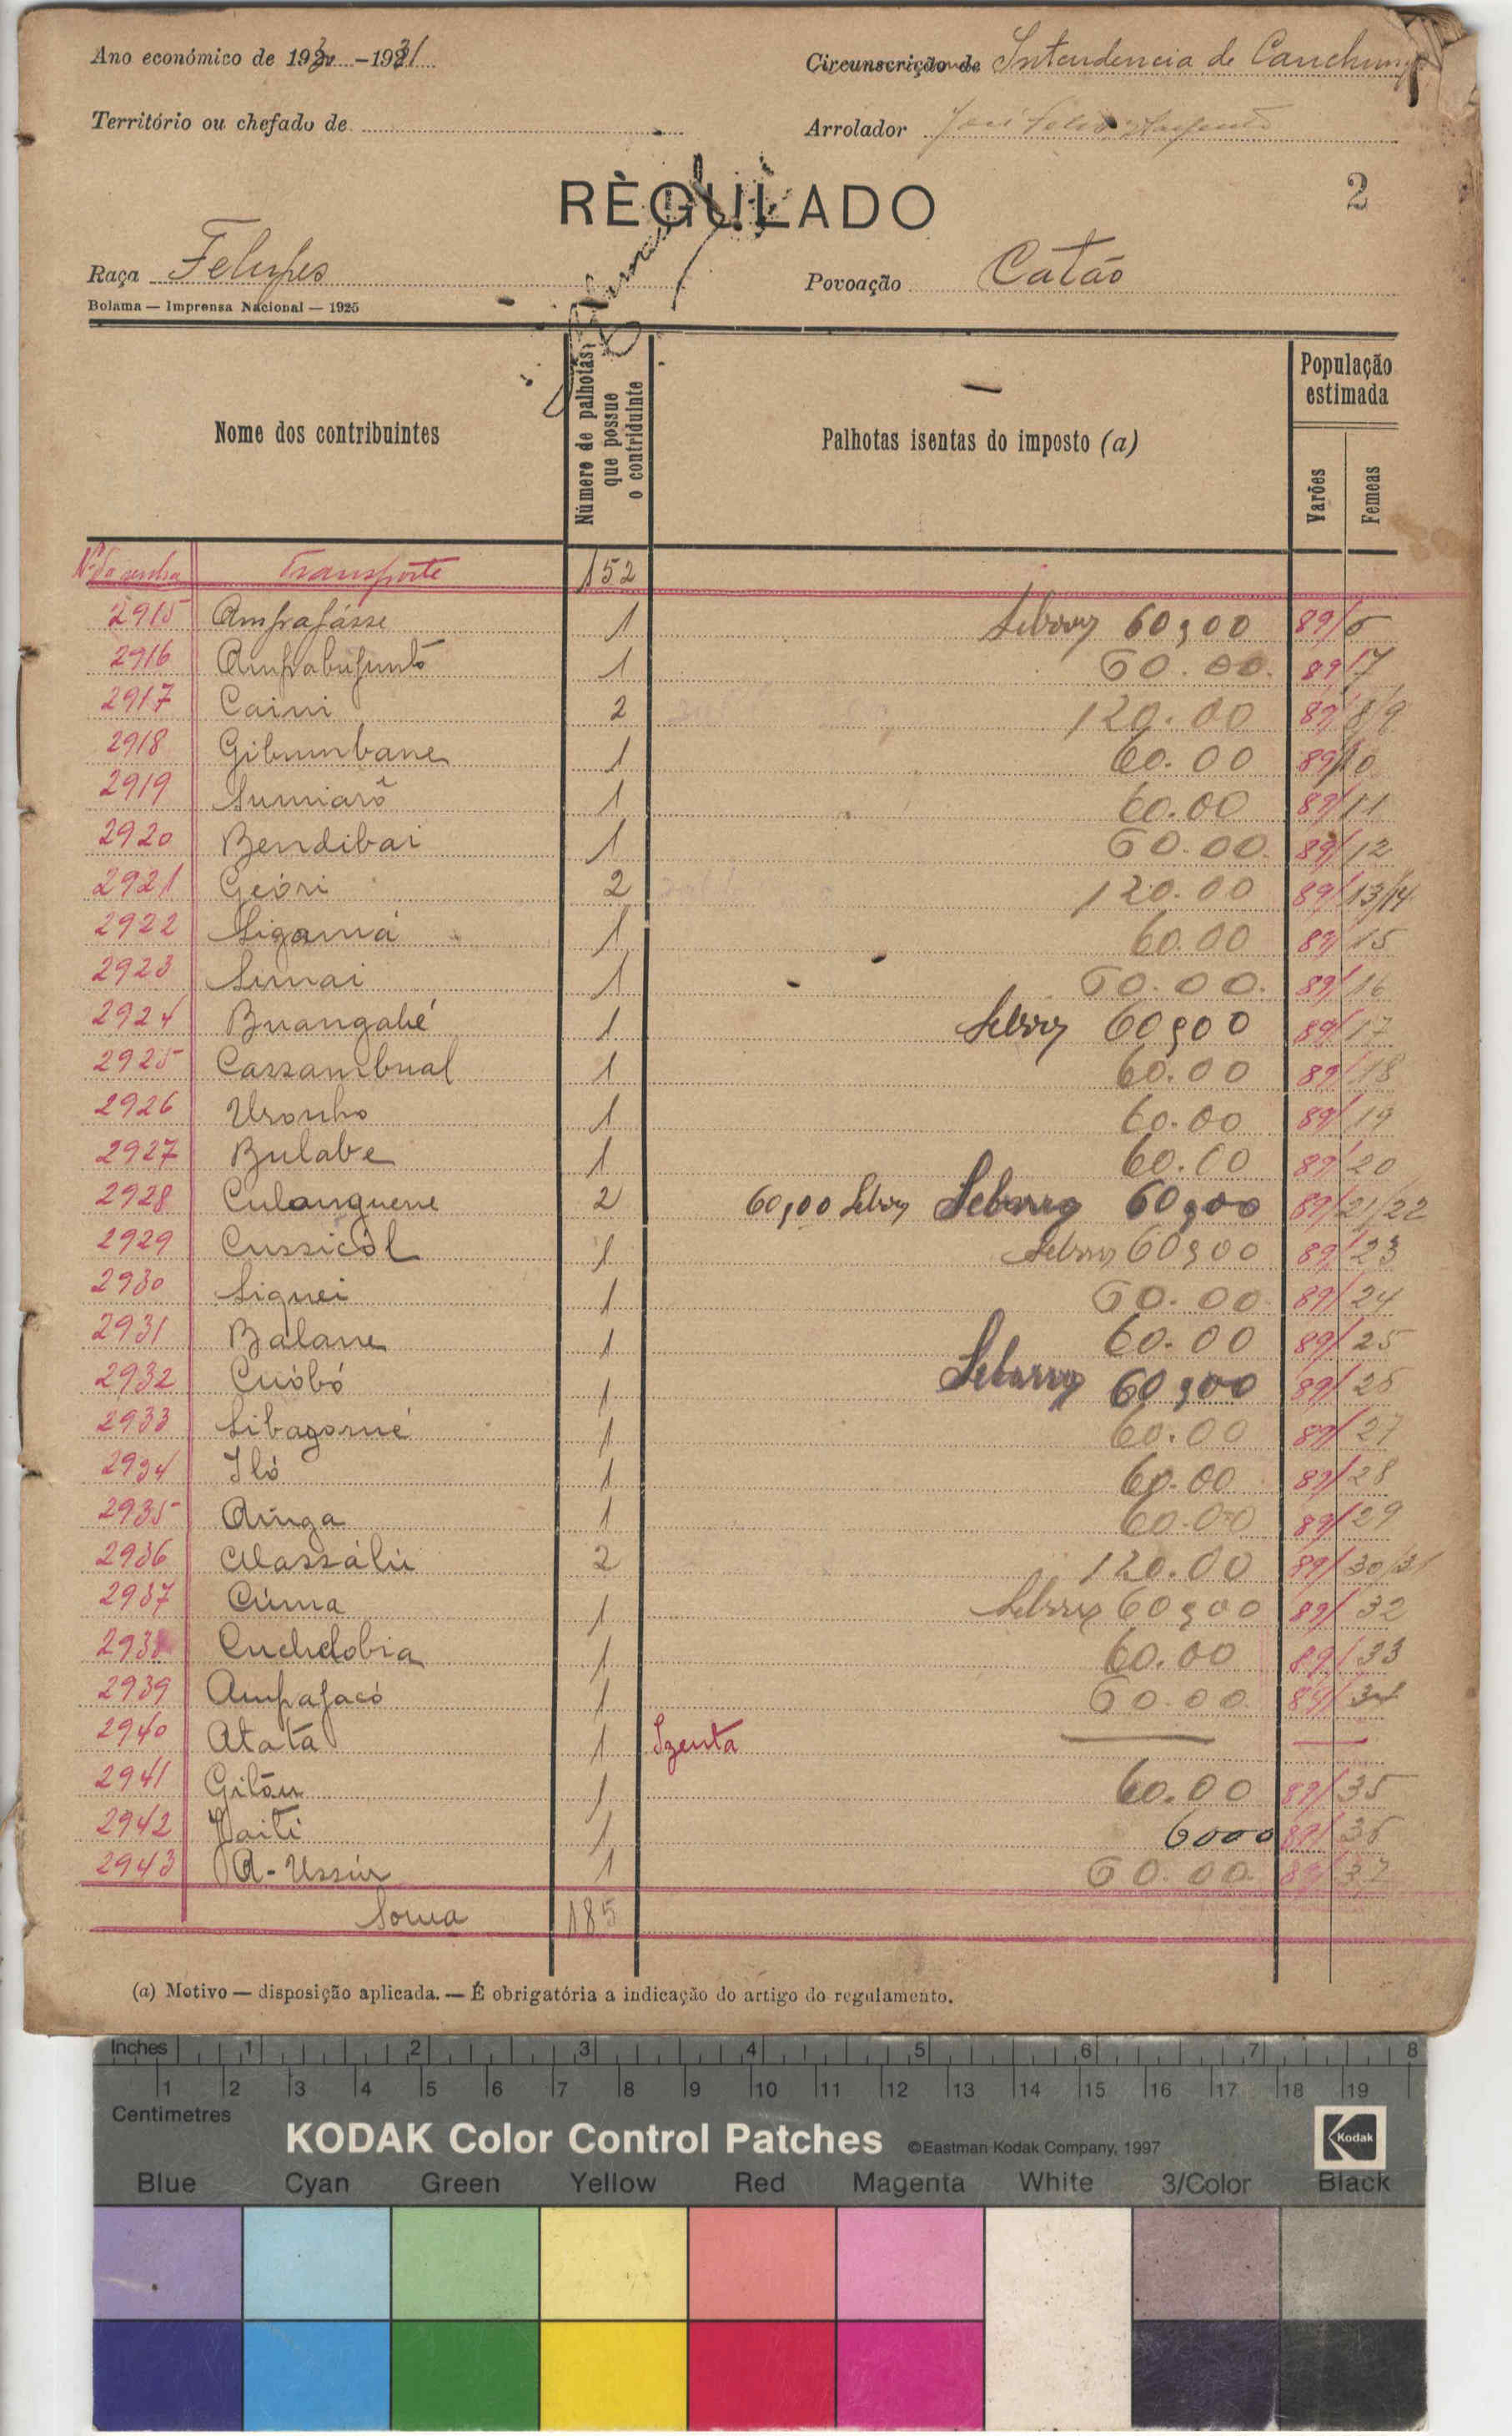 Ano económico de 1930-1931
Circunscrição de Intendencia de Canchungo
Território ou chefado de
Arrolador José
REGULADO
2
Raça Felupes
Povoação Catão
Bolama — Imprensa Nacional — 1925
Nome dos contribuintes
Número de palhotas que possue o contriduinte
Palhotas isentas do imposto (a)
População estimada
Varões
Femeas
Nº da senha Transporte 152
2915 1 60,00 89/6
2916 1 60.00 89/7
2917 Caini 2 120.00 89/8/9
2918 Gibumbane 1 60.00 89/10
2919 Sumiarô 1 60.00 89/11
2920 Bendibai 1 60.00 89/12
2921 Geóri 2 120.00 89/13/14
2922 Sigamá 1 60.00 89/15
2923 Simai 1 60.00 89/16
2924 Buangabé 1 60,00 89/17
2925 Cassambual 1 60.00 89/18
2926 Uronho 1 60.00 89/19
2927 Bulabe 1 60.00 89/20
2928 Culanguene 2 60,00 60,00 89/21/22
2929 Cussicól 1 60,00 89/23
2930 Siguei 1 60.00 89/24
2931 Balane 1 60.00 89/25
2932 Cuóbó 1 60,00 89/26
2933 Sibagomé 1 60.00 89/27
2934 Iló 1 60.00 89/28
2935 Ainga 1 60.00 89/29
2936 Alassáliu 2 120.00 89/30/31
2937 Cúma 1 60,00 89/32
2938 Cuchelobia 1 60.00 89/33
2939 Ampajacó 1 60.00 89/34
2940 Atatá 1 Izenta — —
2941 Gilôn 1 60.00 89/35
2942 Vaiti 1 6000 89/36
2943 A-Ussúr 1 60.00 89/37
Soma 185
(a) Motivo — disposição aplicada. — É obrigatória a indicação do artigo do regulamento.
Inches 1 2 3 4 5 6 7 8
1 2 3 4 5 6 7 8 9 10 11 12 13 14 15 16 17 18 19
Centimetres
KODAK Color Control Patches ©Eastman Kodak Company, 1997 Kodak
Blue Cyan Green Yellow Red Magenta White 3/Color Black